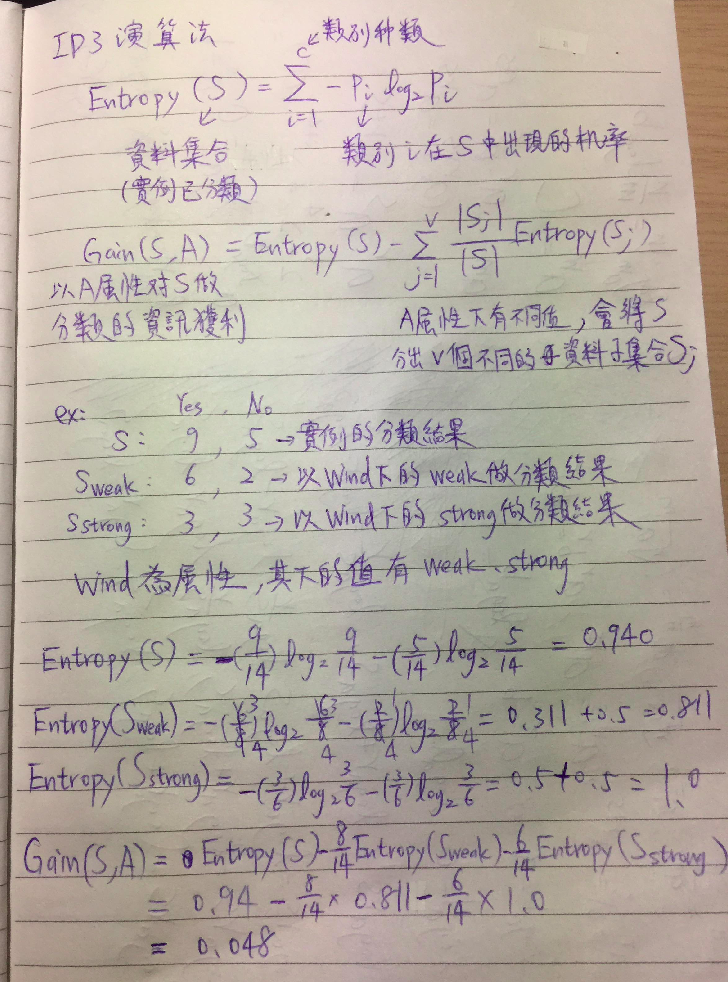 ID3 演算法
c ↙類別种類
Entropy (S) = Σ_{i=1}^{c} - Pi log₂ Pi
資料集合 類別 i 在 S 中出現的机率
(實例已分類)
Gain(S,A) = Entropy(S) - Σ_{j=1}^{v} |Sj|/|S| Entropy(Sj)
以A属性对S做
分類的資訊獲利 A属性下有不同值, 會將S
分出 V個不同的 資料子集合Sj
ex: Yes , No
S: 9 , 5 → 實例的分類結果
Sweak: 6 , 2 → 以 Wind下的 weak做分類結果
Sstrong: 3 , 3 → 以 Wind下的 strong做分類結果
Wind 為属性, 其下的值有 weak、strong
Entropy(S) = -(9/14) log₂ 9/14 - (5/14) log₂ 5/14 = 0.940
Entropy(Sweak) = -(3/4) log₂ 3/4 - (1/4) log₂ 1/4 = 0.311 + 0.5 = 0.811
Entropy(Sstrong) = -(3/6) log₂ 3/6 - (3/6) log₂ 3/6 = 0.5 + 0.5 = 1.0
Gain(S,A) = Entropy(S) - 8/14 Entropy(Sweak) - 6/14 Entropy(Sstrong)
= 0.94 - 8/14 × 0.811 - 6/14 × 1.0
= 0.048